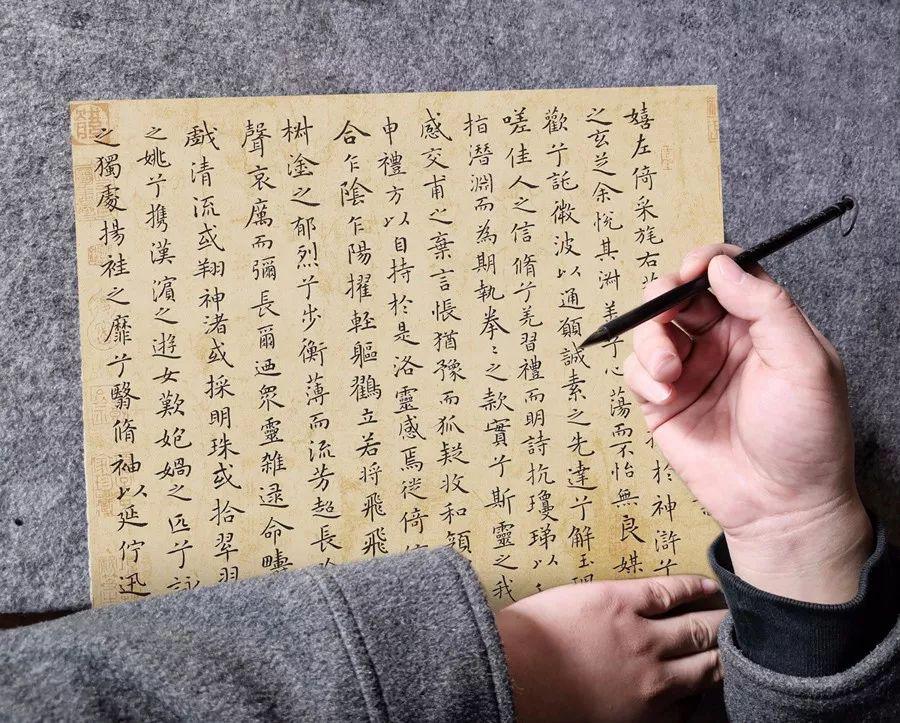 嬉左倚采旄右 於神滸兮
之玄芝余悅其淑美兮心蕩而不怡無良媒
歡兮託微波以通願誠素之先達兮解玉
嗟佳人之信脩兮羌習禮而明詩抗瓊珶以
指潛淵而為期執拳〻之款實兮斯靈之我
感交甫之棄言悵猶豫而狐疑收和顏
申禮方以自持於是洛靈感焉徙倚
合乍陰乍陽擢輕軀鸖立若将飛飛
樹塗之郁烈兮步衡薄而流芳超長
聲哀厲而彌長爾迺衆靈雜遝命疇
戲清流或翔神渚或採明珠或拾翠羽
之姚兮携漢濱之遊女歎匏媧之匹兮詠
之獨處揚袿之靡兮翳脩袖以延佇迅